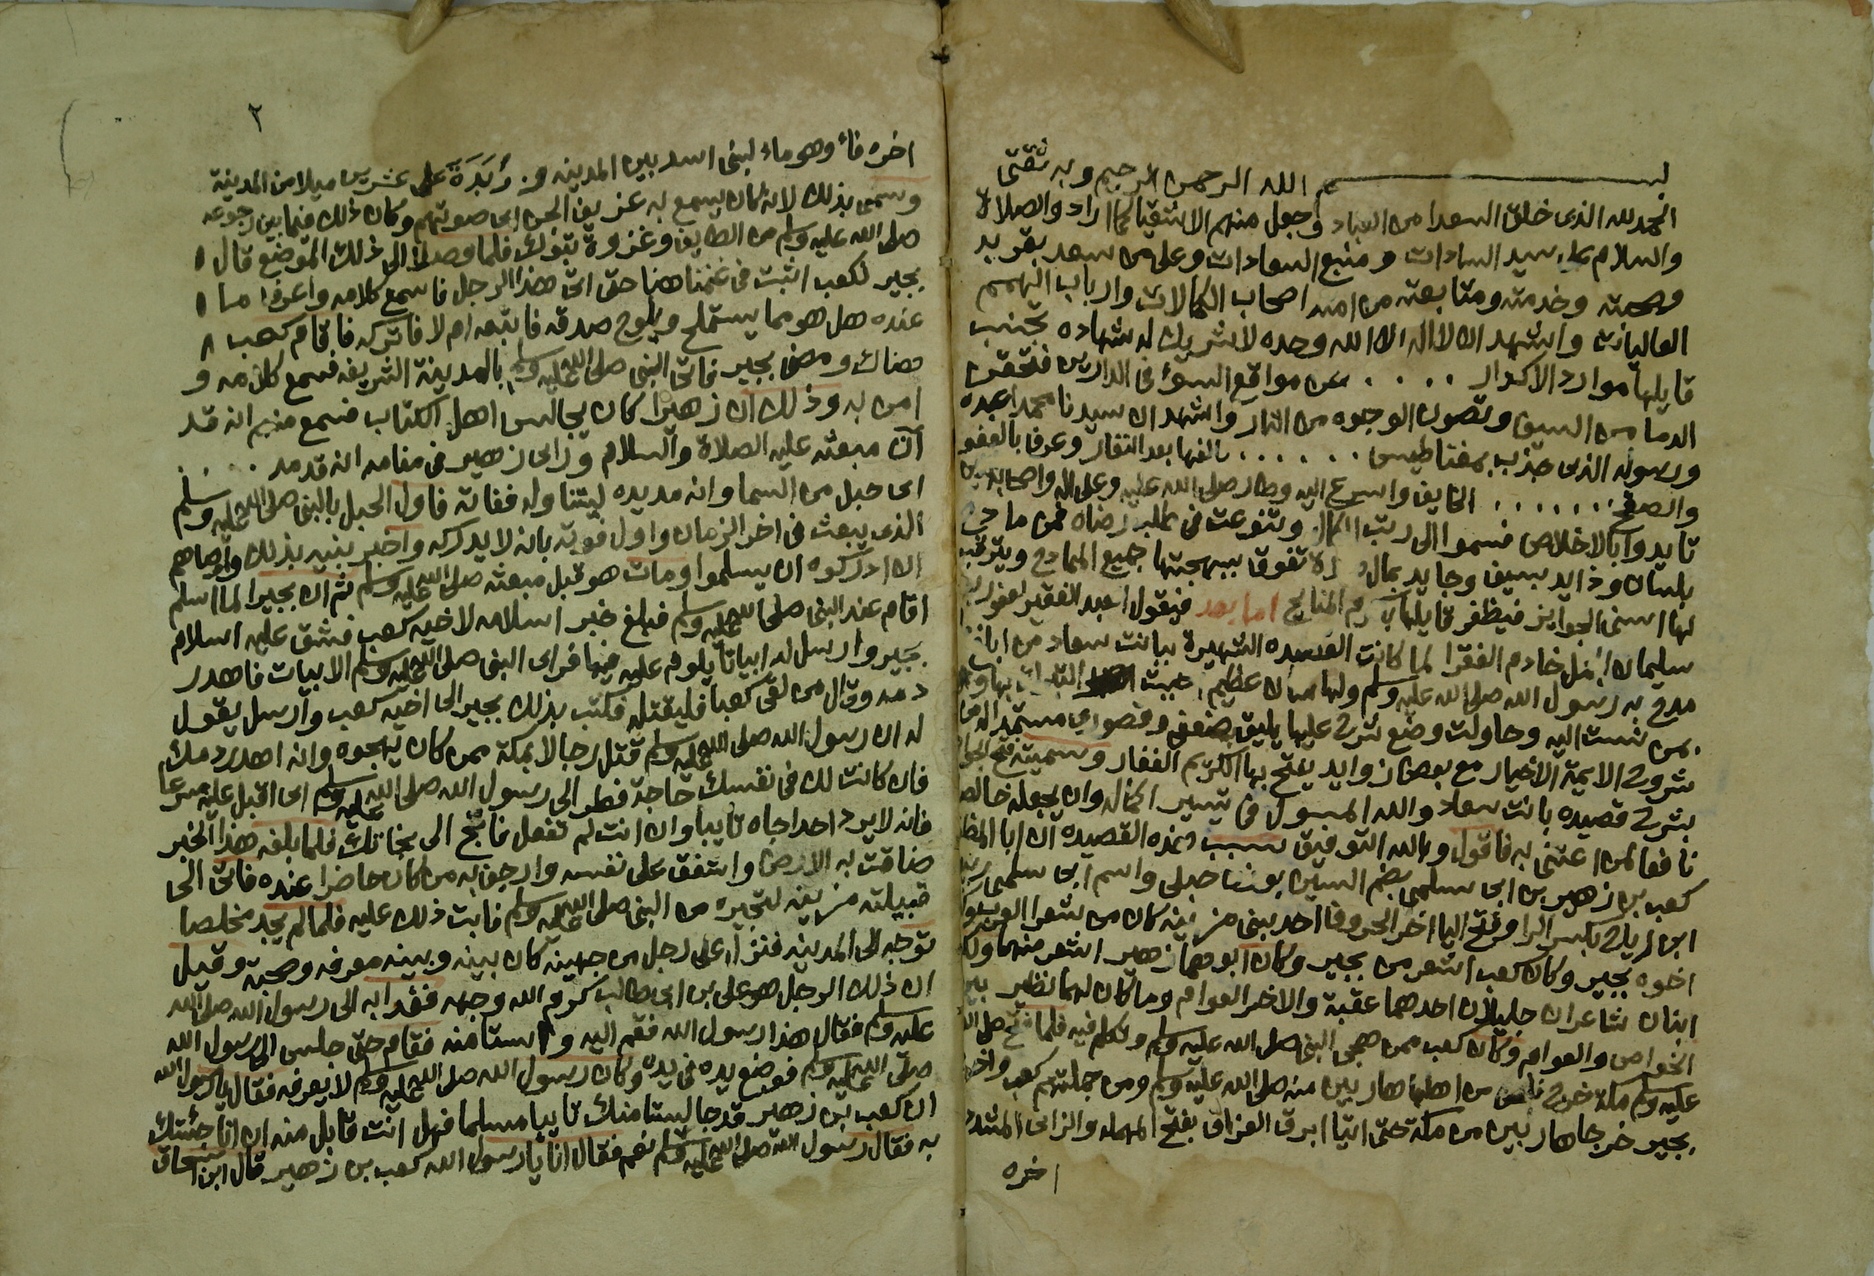 بسم الله الرحمن الرحيم وبه ثقتى
الحمد لله الذى خلق السعدا من العباد وجعل منهم الاشقيا كما اراد والصلاة
والسلام على سيد السادات ومنبع السعادات وعلى من سعد بقربه
وصحبته وخدمته ومتابعته من امته اصحاب الكمالات وارباب الهمم
العاليات واشهد ان لا اله الا الله وحده لا شريك له شهاده تجنب
قايلها موارد الاكدار من مواقع السوء فى الدارين فتحقن
الدما من السيوف وتصون الوجوه من النار واشهد ان سيدنا محمدا عبده
ورسوله الذى جذب بمغناطيس بعد النفار وعرف بالعفو
والصفح الخايف واسرع اليه وطار صلى الله عليه وعلى اله واصحابه
تايدوا بالاخلاص فسموا الى رتب الكمال وتنوعت فى طلب رضاه فمن ما
بلسان وذايد بسيف وجايد بمال تفوق ببهجتها جميع المادح
لها اسنى الجوايز فيظفر قايلها المنايح اما بعد فيقول العبد الفقير
سليمان خادم الفقرا لما كانت القصيده الشهيرة ببانت سعاد من
مدح به رسول الله صلى الله عليه وسلم ولها شان عظيم
من نسبت اليه وحاولت وضع شرح عليها يليق بضعفى وقصورى مستمدا له من
شروح الايمة الاخيار مع بعض زوايد يفتح بها الكريم الغفار وسميته فتح
بشرح قصيده بانت سعاد والله المسول فى تيسير اكماله وان يجعله خالصا
نافعا لمن اعتنى به فاقول وبالله التوفيق سبب هذه القصيده ان ابا
كعب بن زهير بن ابى سلمى بضم السين واسم ابى سلمى
ابن رياح بكسر الرا وفتح اليا اخر الحروف احد بنى مزينه كان من شعرا العرب
اخوه بجير وكان كعب اشعر من بجير وكان ابوهما زهير اشعر منهما
ابنان شاعران جليلان احدهما عقبة والاخر العوام وما كان لهما نظير
الخواص والعوام وكان كعب ممن هجى النبى صلى الله عليه وسلم وتكلم فيه فلما فتح
عليه وسلم مكة خرج ناس من اهلها هاربين منه صلى الله عليه وسلم ومن جملتهم كعب
بجير خرجا هاربين من مكة حتى اتيا ابرق العزاف بفتح المهمله والزاى
اخره
٢
اخره فا وهو ماء لبنى اسد بين المدينه و رَبَذَة على عشرين ميلا من المدينة
وسمى بذلك لانه كان يسمع به عزيف الجن اى صوتهم وكان ذلك فيما بين رجوعه
صلى الله عليه وسلم من الطايف وغزوة تبوك فلما وصلا الى ذلك الموضع قال
بجير لكعب اثبت فى غنمنا هنا حتى اتى هذا الرجل فاسمع كلامه واعرف ما
عنده هل هو مما يستملح ويلوح صدقه فاتبعه ام لا فاتركه فاقام كعب
هناك ومضى بجير فاتى النبى صلى الله عليه وسلم بالمدينة الشريفه فسمع كلامه و
امن به وذلك ان زهيرا كان يجالس اهل الكتاب فسمع منهم انه قد
آن مبعثه عليه الصلاة والسلام وراى زهير فى منامه انه قد مد
اى حبل من السما وانه مد يده ليتناوله ففاته فاول الحبل بالنبى صلى الله عليه وسلم
الذى يبعث فى اخر الزمان واول فوته بانه لا يدركه واخبر بنيه بذلك واوصاهم
ان ادركوه ان يسلموا ومات هو قبل مبعثه صلى الله عليه وسلم ثم ان بجيرا لما اسلم
اقام عند النبى صلى الله عليه وسلم فبلغ خبر اسلامه لاخيه كعب فشق عليه اسلام
بجير وارسل له ابياتا يلوم عليه فيها فراى النبى صلى الله عليه وسلم الابيات فاهدر
دمه وقال من لقى كعبا فليقتله فكتب بذلك بجير الى اخيه كعب وارسل يقول
له ان رسول الله صلى الله عليه وسلم قتل رجالا بمكة ممن كان يهجوه وانه اهدر دمك
فان كانت لك فى نفسك حاجة فطر الى رسول الله صلى الله عليه وسلم اى اقبل عليه مسرعا
فانه لا يرد احدا جاه تايبا وان انت لم تفعل فانج الى نجاتك فلما بلغه هذا الخبر
ضاقت به الارض واشفق على نفسه وارجف به من كان حاضرا عنده فاتى الى
قبيلته مزينه لتجيره من النبى صلى الله عليه وسلم فابت ذلك عليه فلما لم يجد مخلصا
توجه الى المدينه فنزل على رجل من جهينه كان بينه وبينه معرفه وصحبة وقيل
ان ذلك الرجل هو على بن ابى طالب كرم الله وجهه فغدا به الى رسول الله صلى الله
عليه وسلم فقال هذا رسول الله فقم اليه واستامنه فقام حتى جلس الى رسول الله
صلى الله عليه وسلم فوضع يده فى يده وكان رسول الله صلى الله عليه وسلم لا يعرفه فقال يا رسول الله
ان كعب بن زهير قد جا ليستامنك تايبا مسلما فهل انت قابل منه ان انا جئتك
به فقال رسول الله صلى الله عليه وسلم نعم فقال انا يا رسول الله كعب بن زهير قال ابن اسحاق